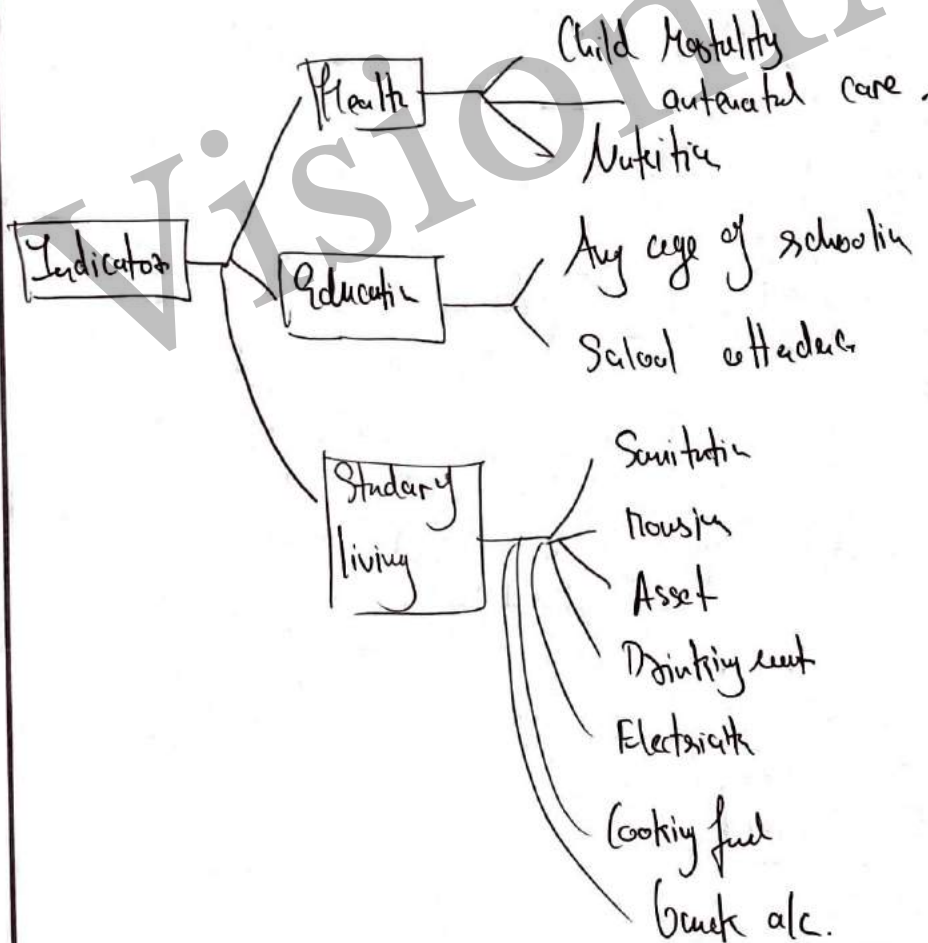 Vision
Health
Child Mortality
antenatal care.
Nutrition
Indicator
Education
Avg age of schooling
School attendance
Standard of living
Sanitation
Housing
Asset
Drinking
Electricity
Cooking fuel
Bank a/c.